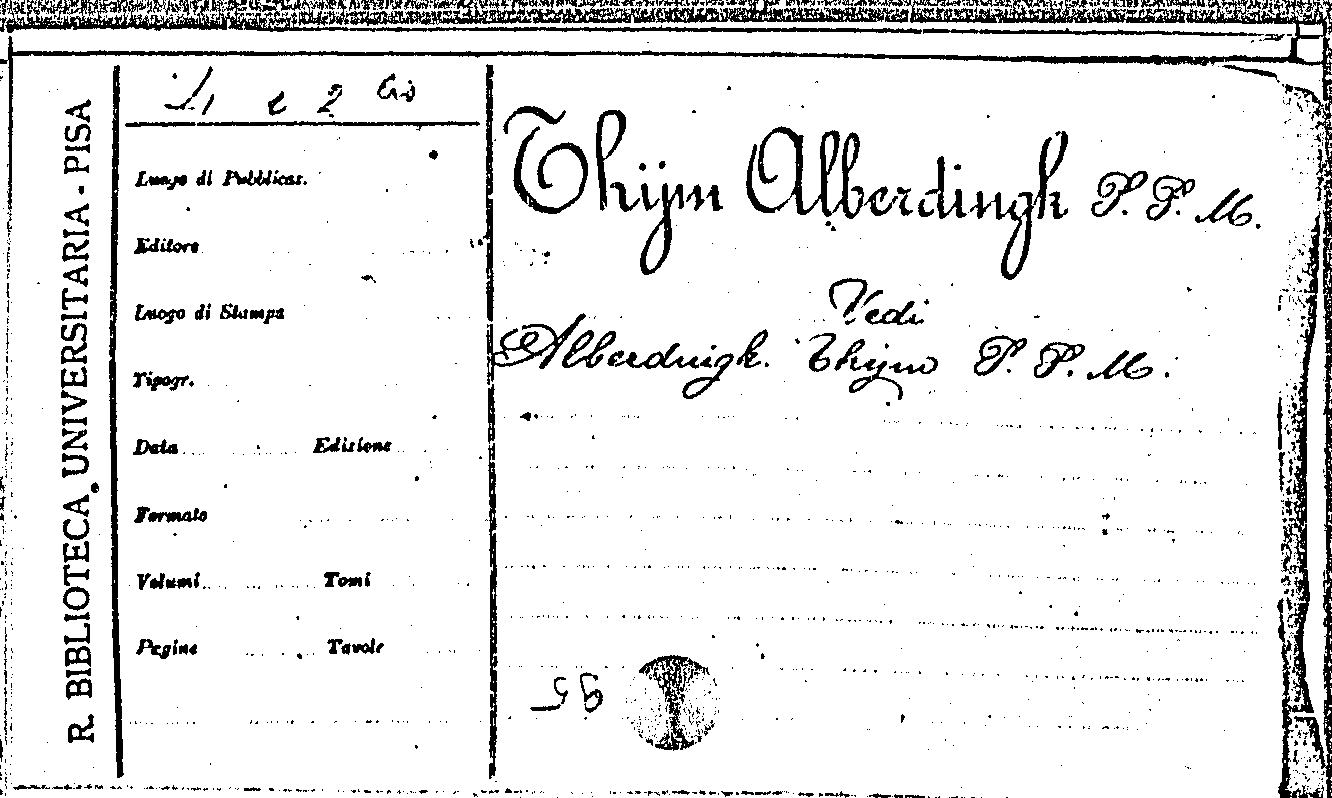 R. BIBLIOTECA UNIVERSITARIA - PISA
e 2
Luogo di Pubblicaz.
Editore
Luogo di Stampa
Tipogr.
Data Edizione
Formato
Volumi Tomi
Pagine Tavole
Thijm Alberdingk P. P. M.
Vedi
Alberdingk Thijm P. P. M.
95